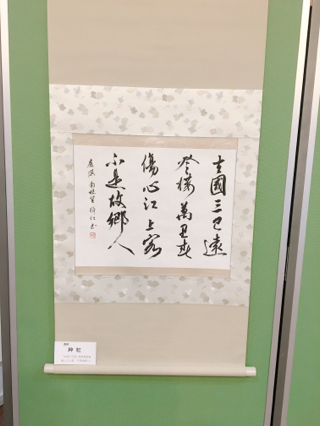 去國三巴遠
登樓萬里春
傷心江上客
不是故鄉人
盧僎 南楼望